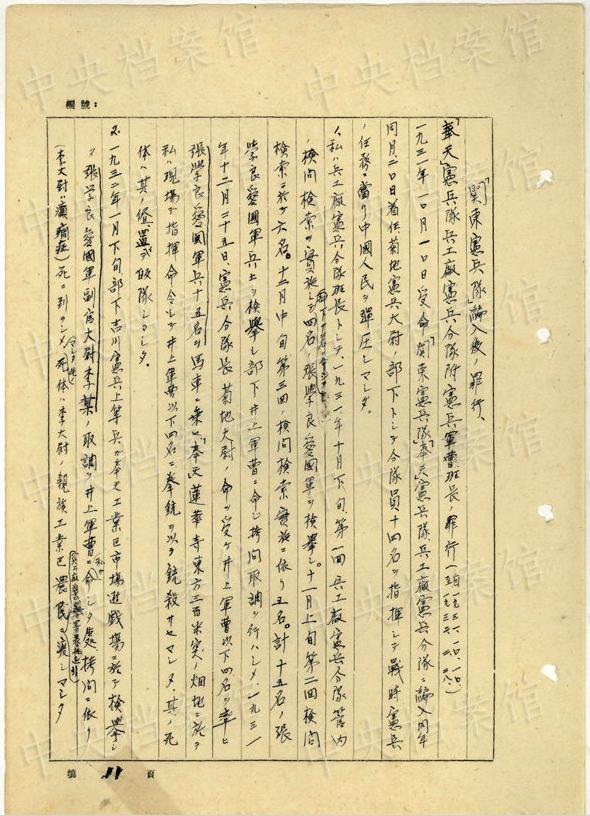 欄號：
「関東憲兵隊」編入後ノ罪行、
「奉天」憲兵隊兵工廠憲兵分隊附憲兵軍曹班長ノ罪行
一九三一年一〇月一〇日受命「関東憲兵隊」「奉天」憲兵隊兵工廠憲兵分隊ニ編入同年
同月二〇日着任菊地憲兵大尉ノ部下トシテ分隊員十四名ヲ指揮シテ戰時憲兵
ノ任務ニ當リ中國人民ヲ彈圧シマシタ。
1、私ハ兵工廠憲兵分隊班長トシテ一九三一年十月下旬第一回兵工廠憲兵分隊管内
ノ檢問檢索ヲ實施シ四名ノ張學良愛國軍ヲ檢挙シ、十一月上旬第二回檢問
檢索ニ於テ六名。十二月中旬第三回ノ檢問檢索實施ニ依リ五名。計十五名ノ張
學良愛國軍兵士ヲ檢挙シ部下井上軍曹ニ命シ拷問取調ヲ行ハシメ、一九三一
年十二月二十五日、憲兵分隊長菊地大尉ノ命ヲ受ケ井上軍曹以下四名ヲ率ヒ
張學良愛國軍兵十五名ヲ馬車ニ乗セ「奉天」蓮華寺東方三百米突ノ畑地ニ於テ
私ハ現場ヲ指揮命令シテ井上軍曹以下四名ニ拳銃ヲ以テ銃殺サセマシタ、其ノ死
体ハ其ノ侭置式歸隊シマシタ。
2、一九三二年一月下旬部下吉川憲兵上等兵ガ奉天工業区市場遊戯場ニ於テ檢挙シ
タ張学良愛國軍副官大尉李某ノ取調ヲ井上軍曹ニ私ガ命シタ処拷問ニ依リ
(李大尉ハ癲癇症)死ニ到ラシメマシタ死体ハ李大尉ノ親族工業区農民ニ渡シマシタ
第 11 頁
中央档案馆